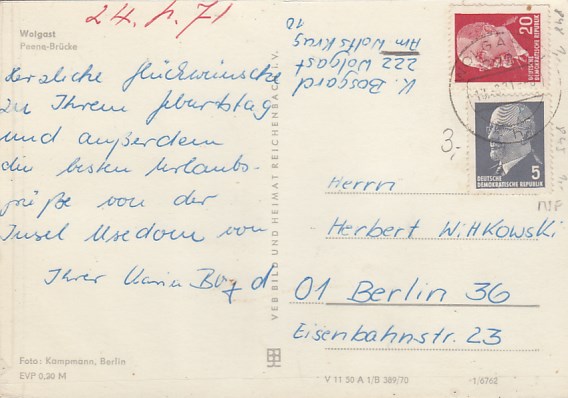 24. 1. 71
Wolgast
Peene-Brücke
Herzliche Glückwünsche
zu Ihrem Geburtstag
und außerdem
die besten Urlaubs-
grüße von der
Insel Usedom von
Ihrer
Foto: Kampmann, Berlin
EVP 0,20 M
VEB BILD UND HEIMAT REICHENBACH i. V.
K. Bosgard
222 Wolgast
Am Wolfskrug
10
20
DEUTSCHE
DEMOKRATISCHE REPUBLIK
5
DEUTSCHE
DEMOKRATISCHE REPUBLIK
3,-
Herrn
Herbert Wittkowski
01 Berlin 36
Eisenbahnstr. 23
V 11 50 A 1/B 389/70
1/6762